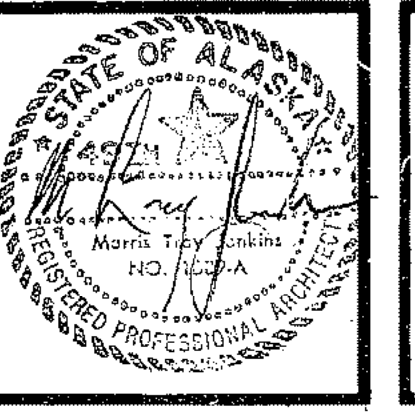 STATE OF ALASKA
49TH
Morris Troy Jenkins
NO.
REGISTERED PROFESSIONAL ARCHITECT